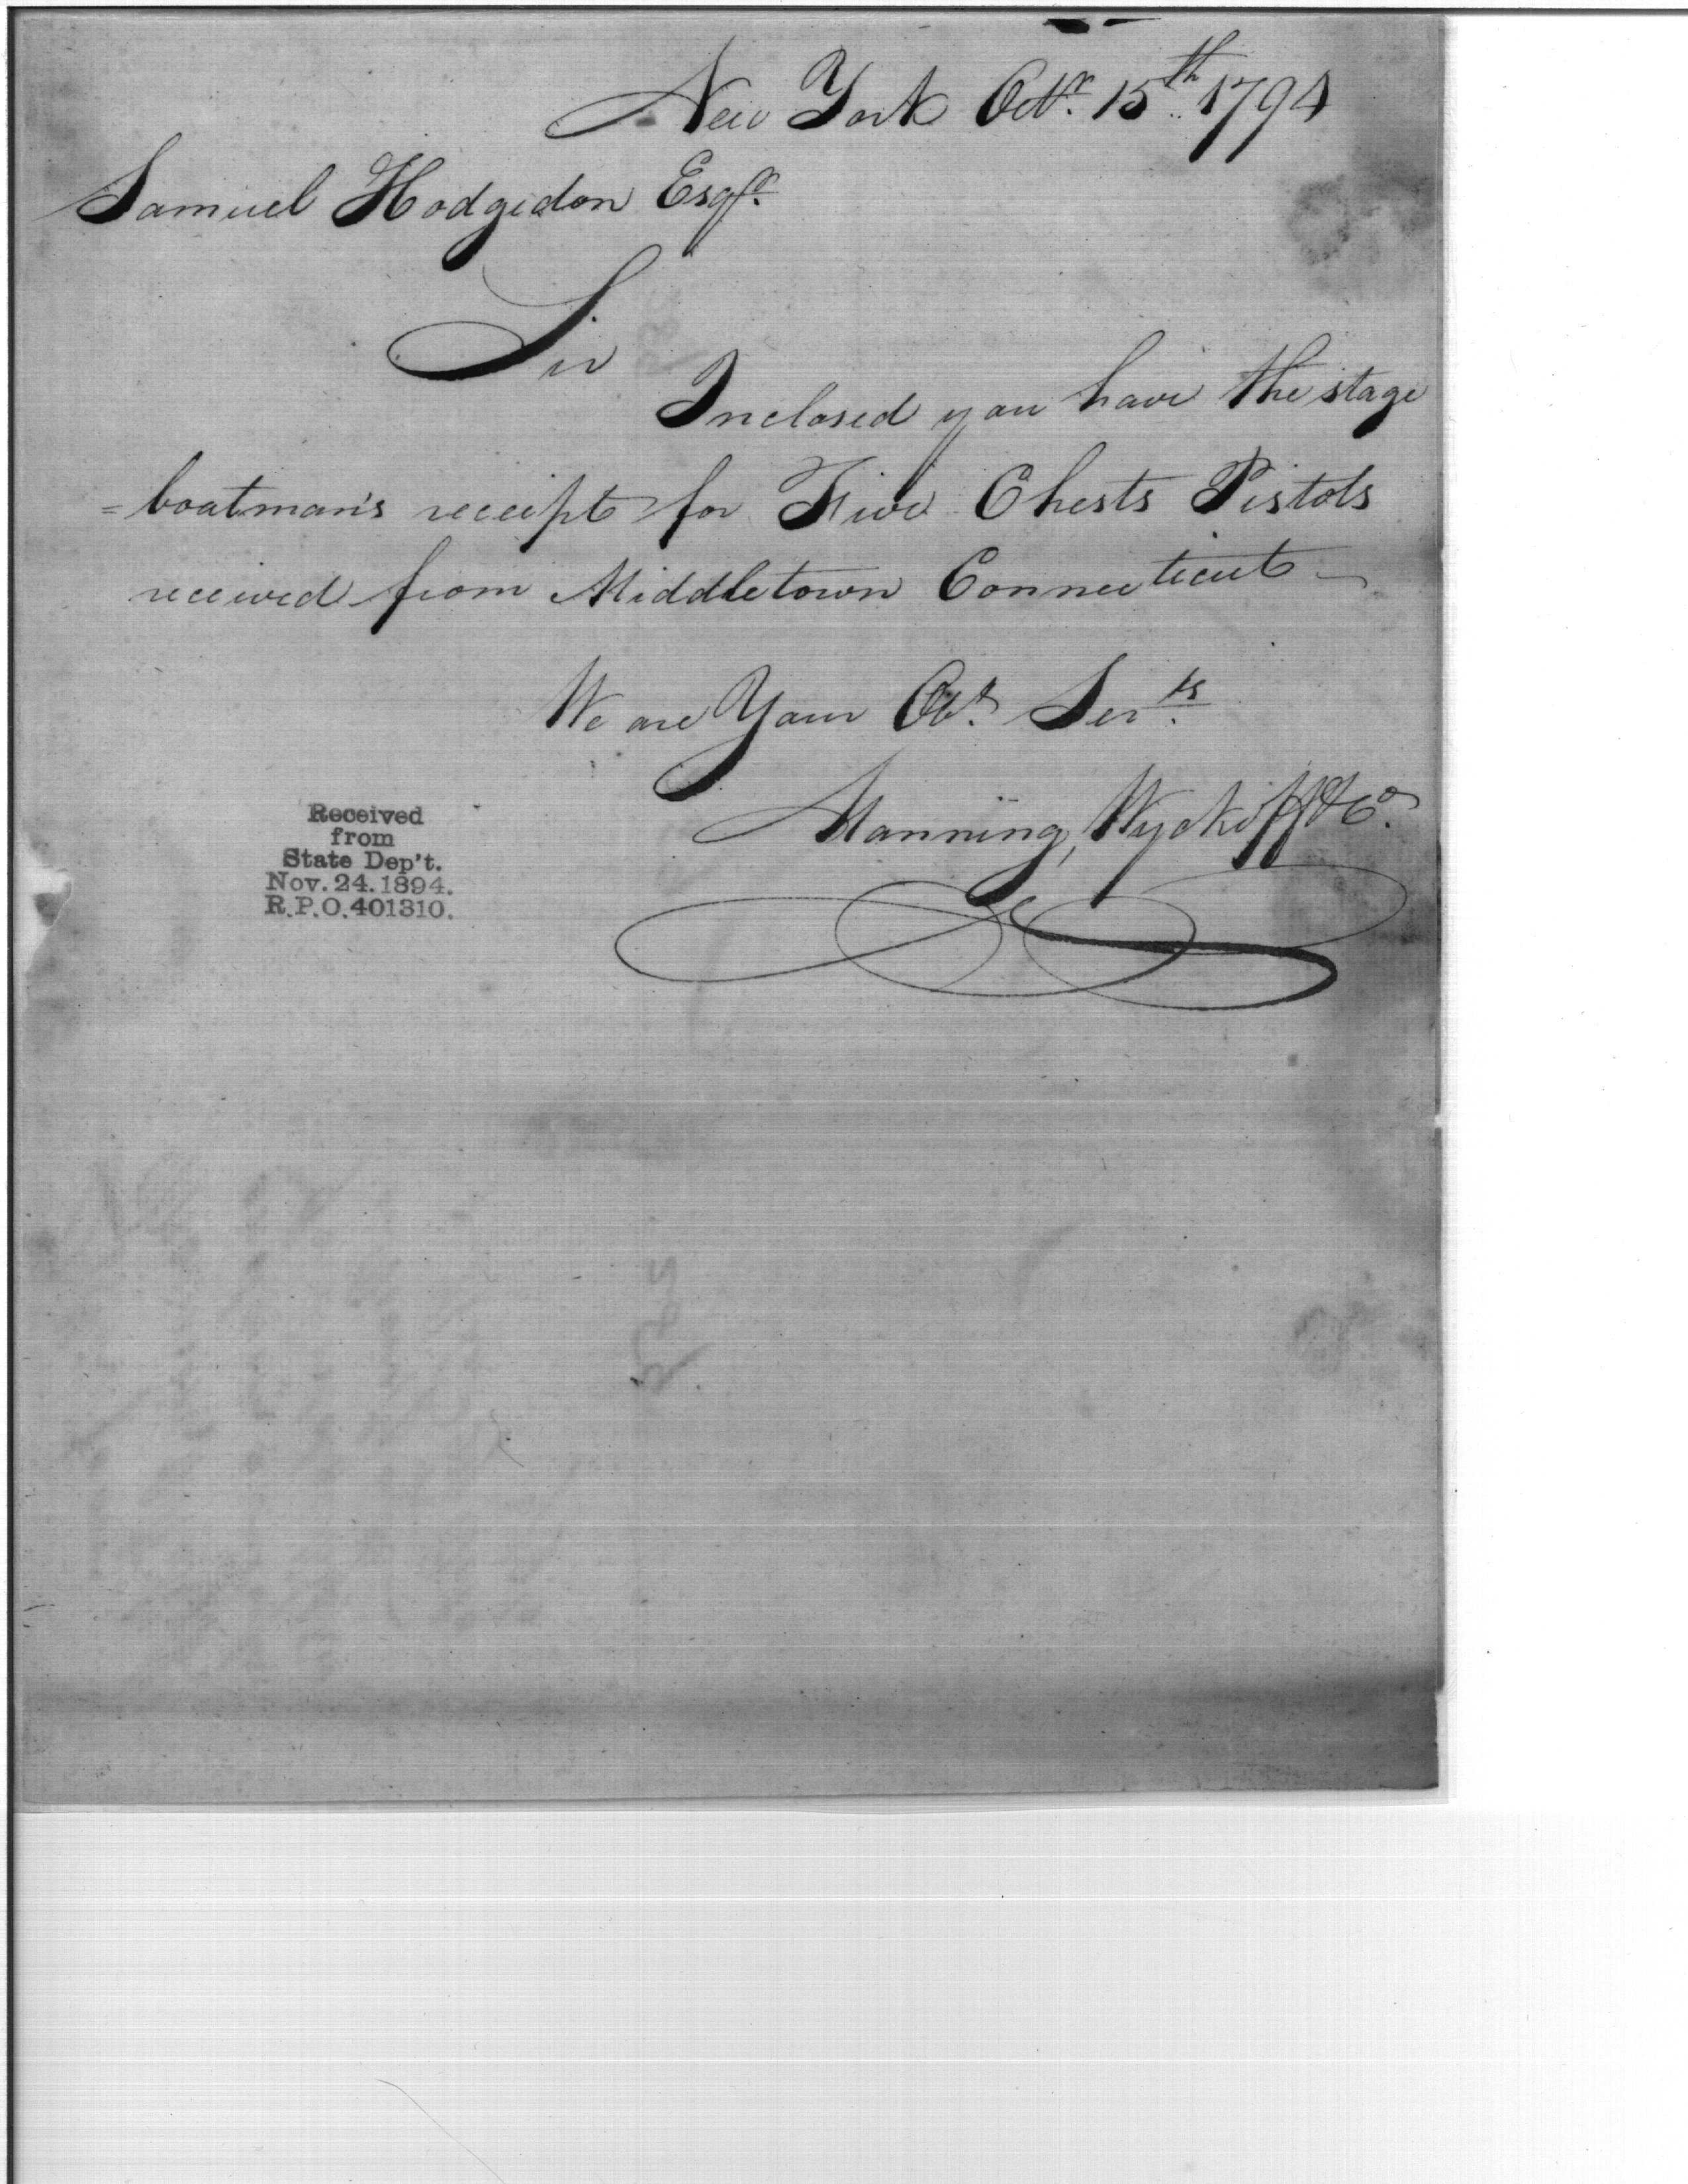 New York Octr. 15th. 1794
Samuel Hodgedon Esqr.
Sir
Inclosed you have the stage
=boatman's receipt for Five Chests Pistols
received from Middletown Connecticut
We are Your Obt. Serts.
Manning, Wyckoff & Co.
Received
from
State Dep't.
Nov. 24. 1894.
R.P.O. 401310.